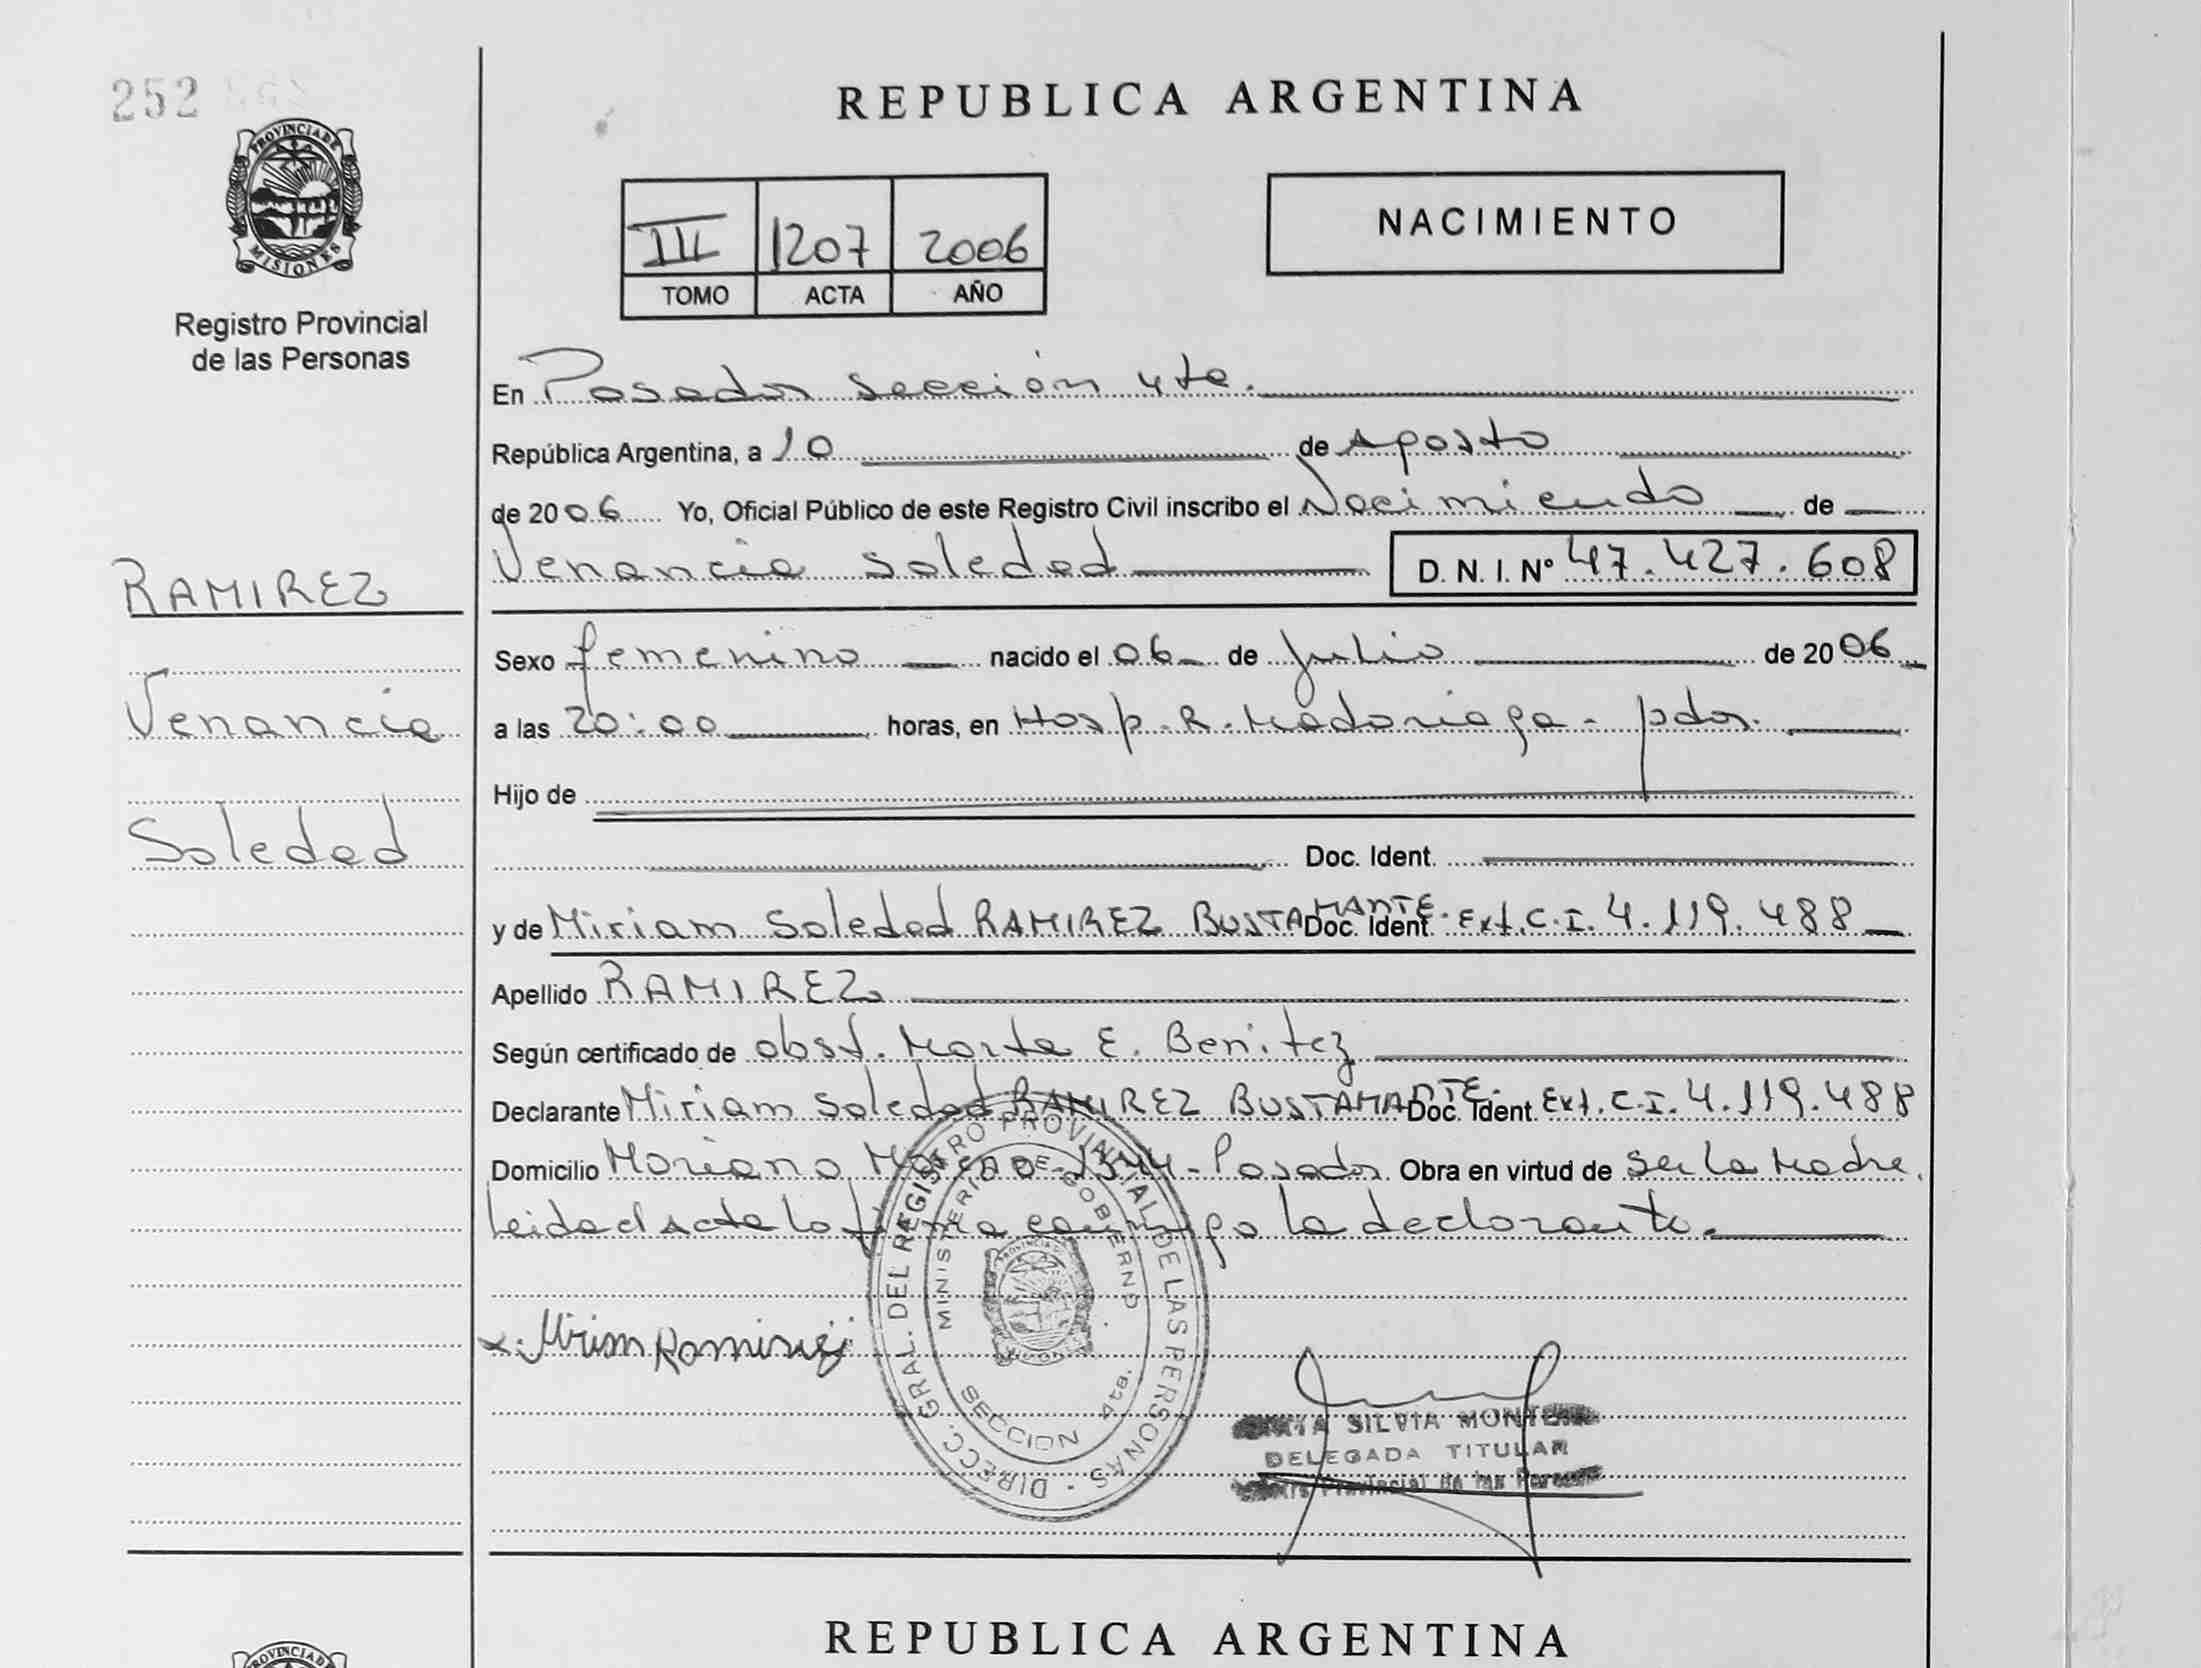 252
REPUBLICA ARGENTINA
PROVINCIA DE
MISIONES
Registro Provincial
de las Personas
III 1207 2006
TOMO ACTA AÑO
NACIMIENTO
En Posadas sección 4ta.
República Argentina, a 10 de Agosto
de 2006 Yo, Oficial Público de este Registro Civil inscribo el Nacimiento de
Venancia Soledad D. N. I. Nº 47.427.608
RAMIREZ
Venancia
Soledad
Sexo femenino nacido el 06 de Julio de 2006
a las 20:00 horas, en Hosp. R. Madariaga - pdas.
Hijo de
Doc. Ident.
y de Miriam Soledad RAMIREZ BUSTAMANTE. Doc. Ident. Ext. C.I. 4.119.488
Apellido RAMIREZ
Según certificado de obst. Marta E. Benitez
Declarante Miriam Soledad RAMIREZ BUSTAMANTE. Doc. Ident. Ext. C.I. 4.119.488
Domicilio Mariano Posadas. Obra en virtud de ser la Madre.
Leida el Acta la firma conmigo la declarante.
x. Miriam Ramirez
DIRECC. GRAL. DEL REGISTRO PROVINCIAL DE LAS PERSONAS
MINISTERIO DE GOBIERNO
SECCION 4ta.
SILVIA
DELEGADA TITULAR
Provincial de las
REPUBLICA ARGENTINA
PROVINCIA DE